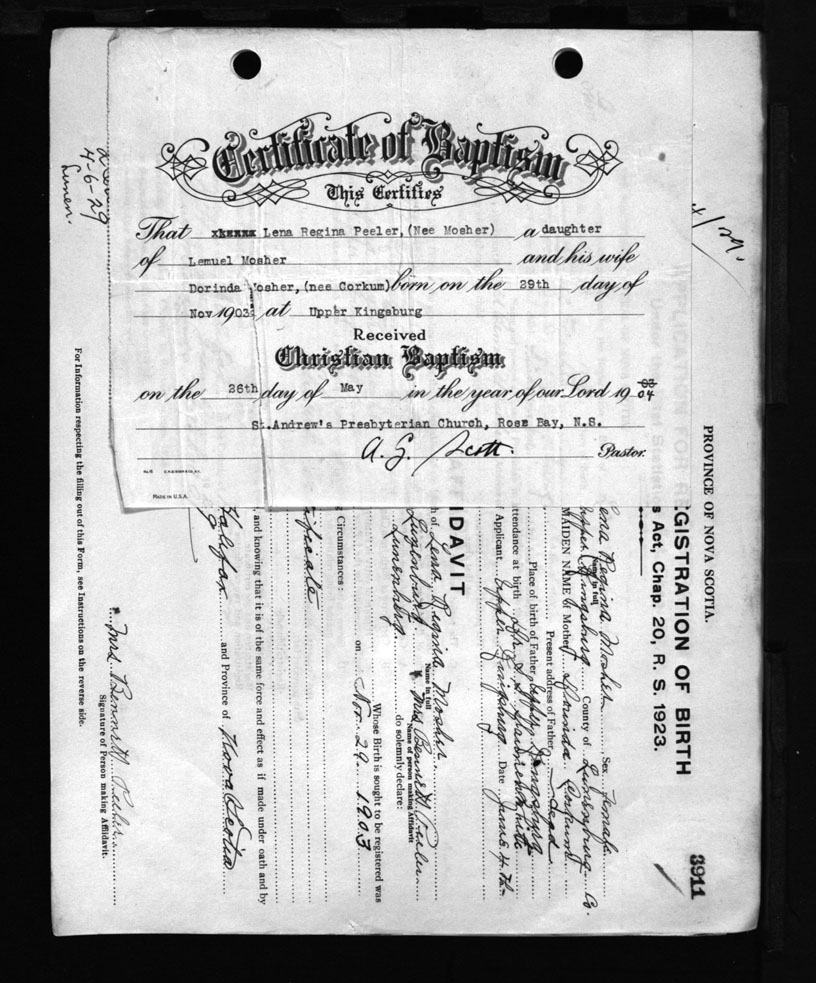 Certificate of Baptism
This Certifies
That Lena Regina Peeler, (Nee Mosher) a daughter
of Lemuel Mosher and his wife
Dorinda Mosher, (nee Corkum) born on the 29th day of
Nov 1903 at Upper Kingsburg
Received
Christian Baptism
on the 26th day of May in the year of our Lord 19 03 04
St.Andrew's Presbyterian Church, Rose Bay, N.S.
A. G. Scott. Pastor.
MADE IN U.S.A.
4-6-29
Lunen.
PROVINCE OF NOVA SCOTIA.
3911
GISTRATION OF BIRTH
s Act, Chap. 20, R. S. 1923.
Lena Regina Mosher Sex Female
Name in full
Upper Kingsburg County of Lunenburg Co.
MAIDEN NAME of Mother Dorinda Corkum
Present address of Father Dead
Place of birth of Father Upper Kingsburg
ttendance at birth
Applicant Upper Kingsburg Date June 4th
IDAVIT
h of Lena Regina Mosher
Name in full
Lunenburg Mrs Bennett Peeler
Name of person making Affidavit
Lunenburg do solemnly declare:
Whose Birth is sought to be registered was
on Nov. 29 1903
g Circumstances:
tificate
and knowing that it is of the same force and effect as if made under oath and by
Halifax and Province of Nova Scotia
Mrs. Bennett Peeler
Signature of Person making Affidavit.
For Information respecting the filling out of this Form, see Instructions on the reverse side.